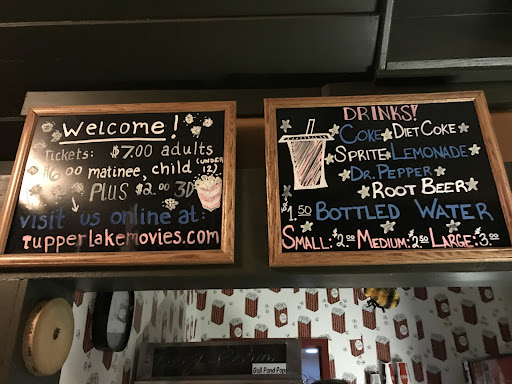 Welcome!
Tickets: $7.00 adults
$6.00 matinee, child (under 12)
PLUS $2.00 3D
visit us online at:
tupperlakemovies.com
DRINKS!
COKE DIET COKE
SPRITE LEMONADE
DR. PEPPER
ROOT BEER
$1.50 BOTTLED WATER
SMALL: $2.00 MEDIUM: $2.50 LARGE: $3.00
Gull Pond Pop